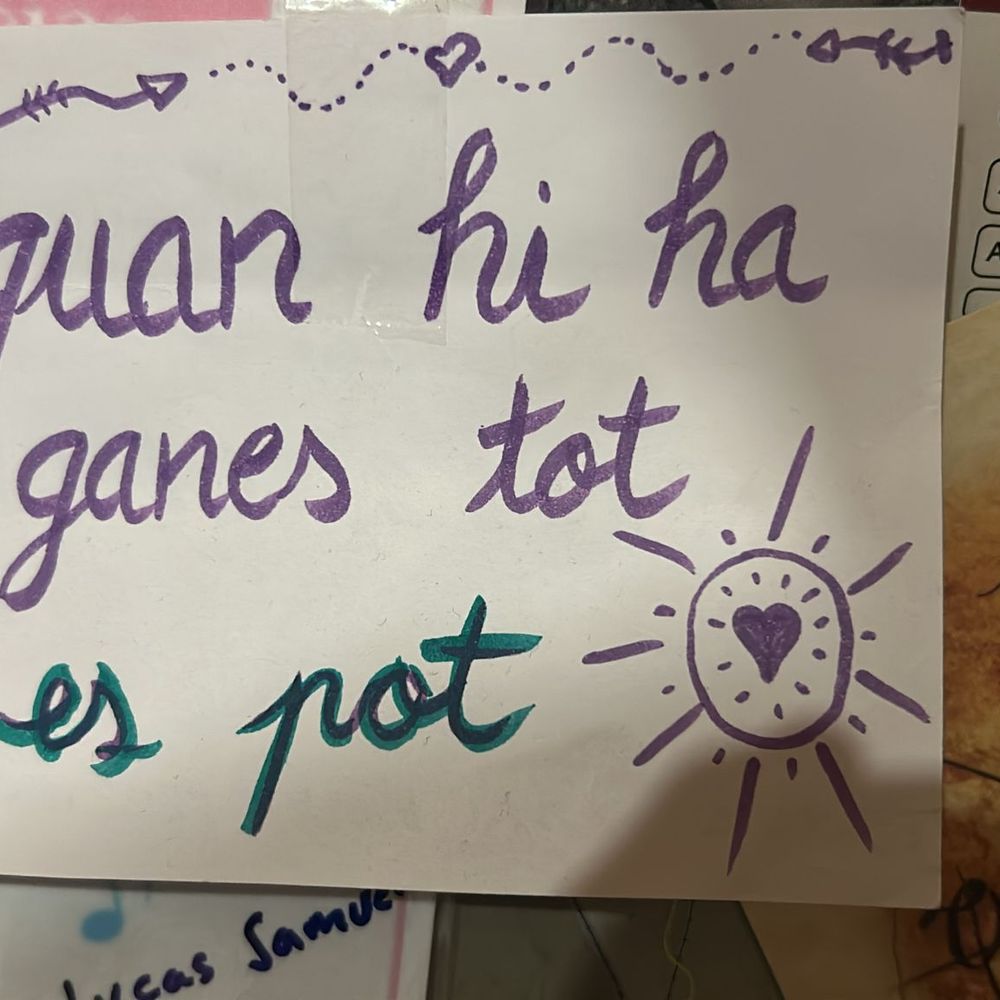 quan hi ha
ganes tot
es pot
Lucas Samuel
A